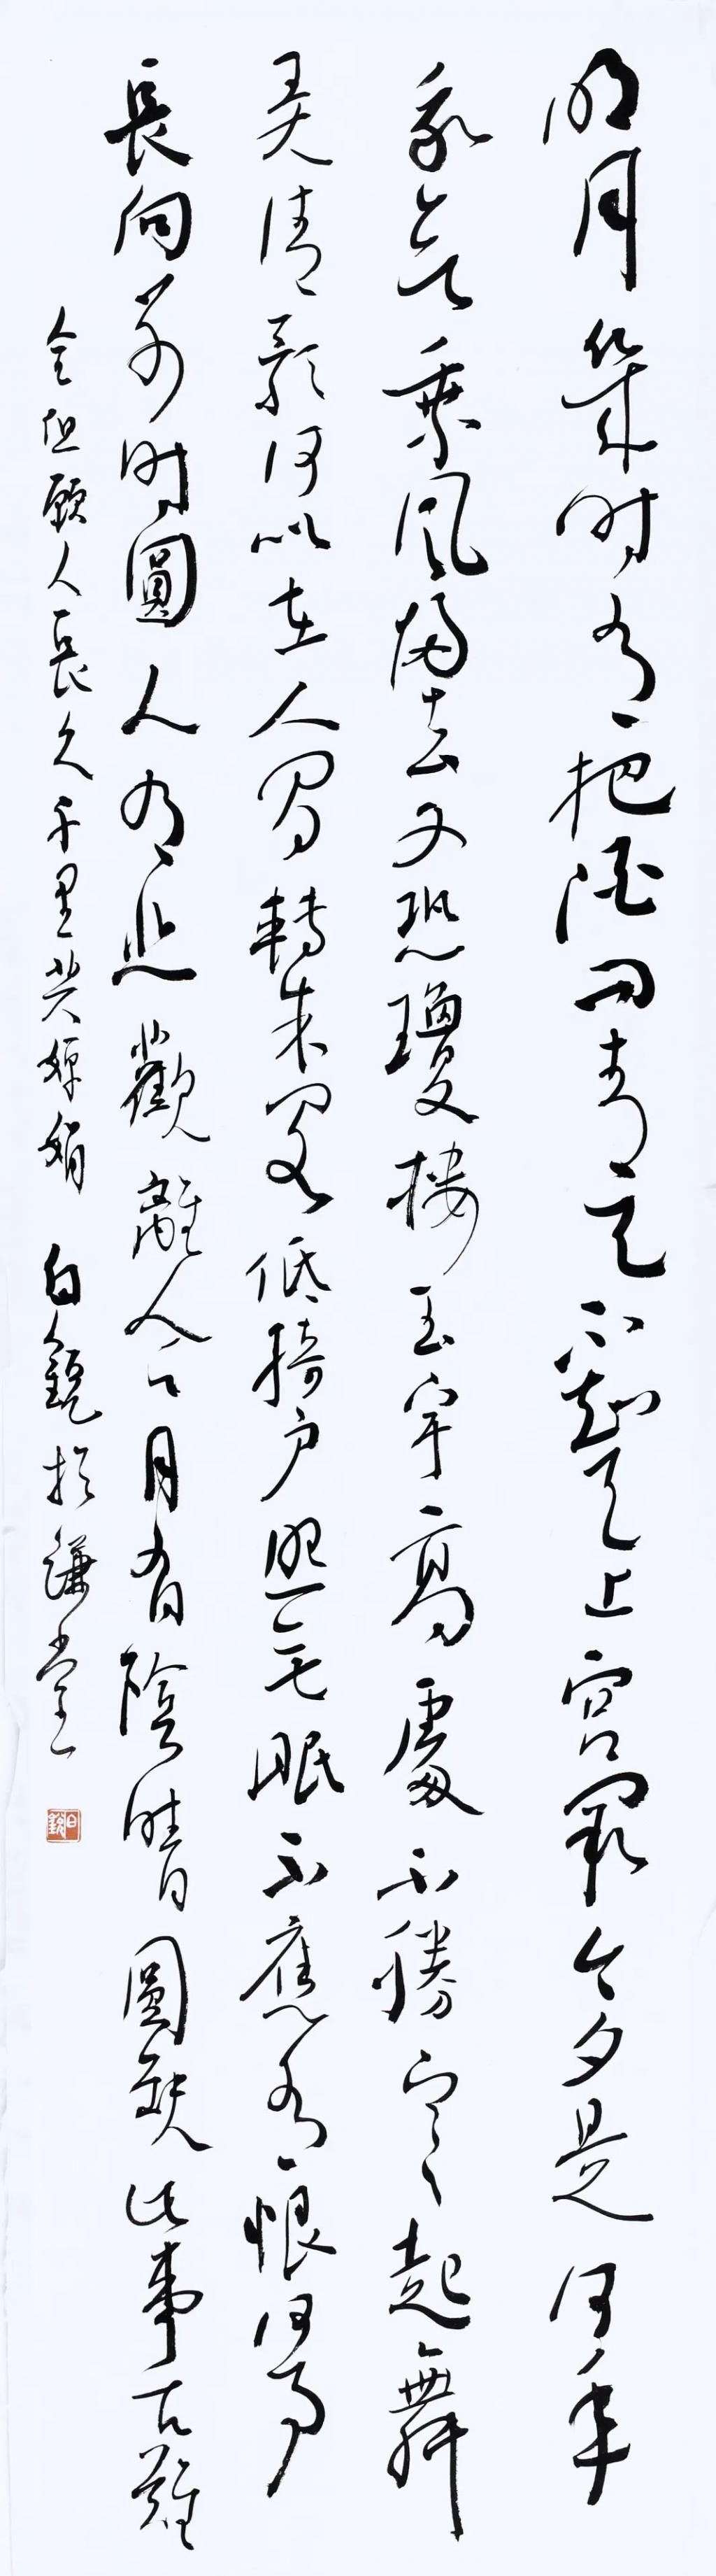 明月幾時有把酒問青天不知天上宮闕今夕是何年
我欲乘風歸去又恐瓊樓玉宇高處不勝寒起舞
弄清影何似在人間轉朱閣低綺戶照無眠不應有恨何事
長向別時圓人有悲歡離合月有陰晴圓缺此事古難
全但願人長久千里共嬋娟 白鋭於謙堂